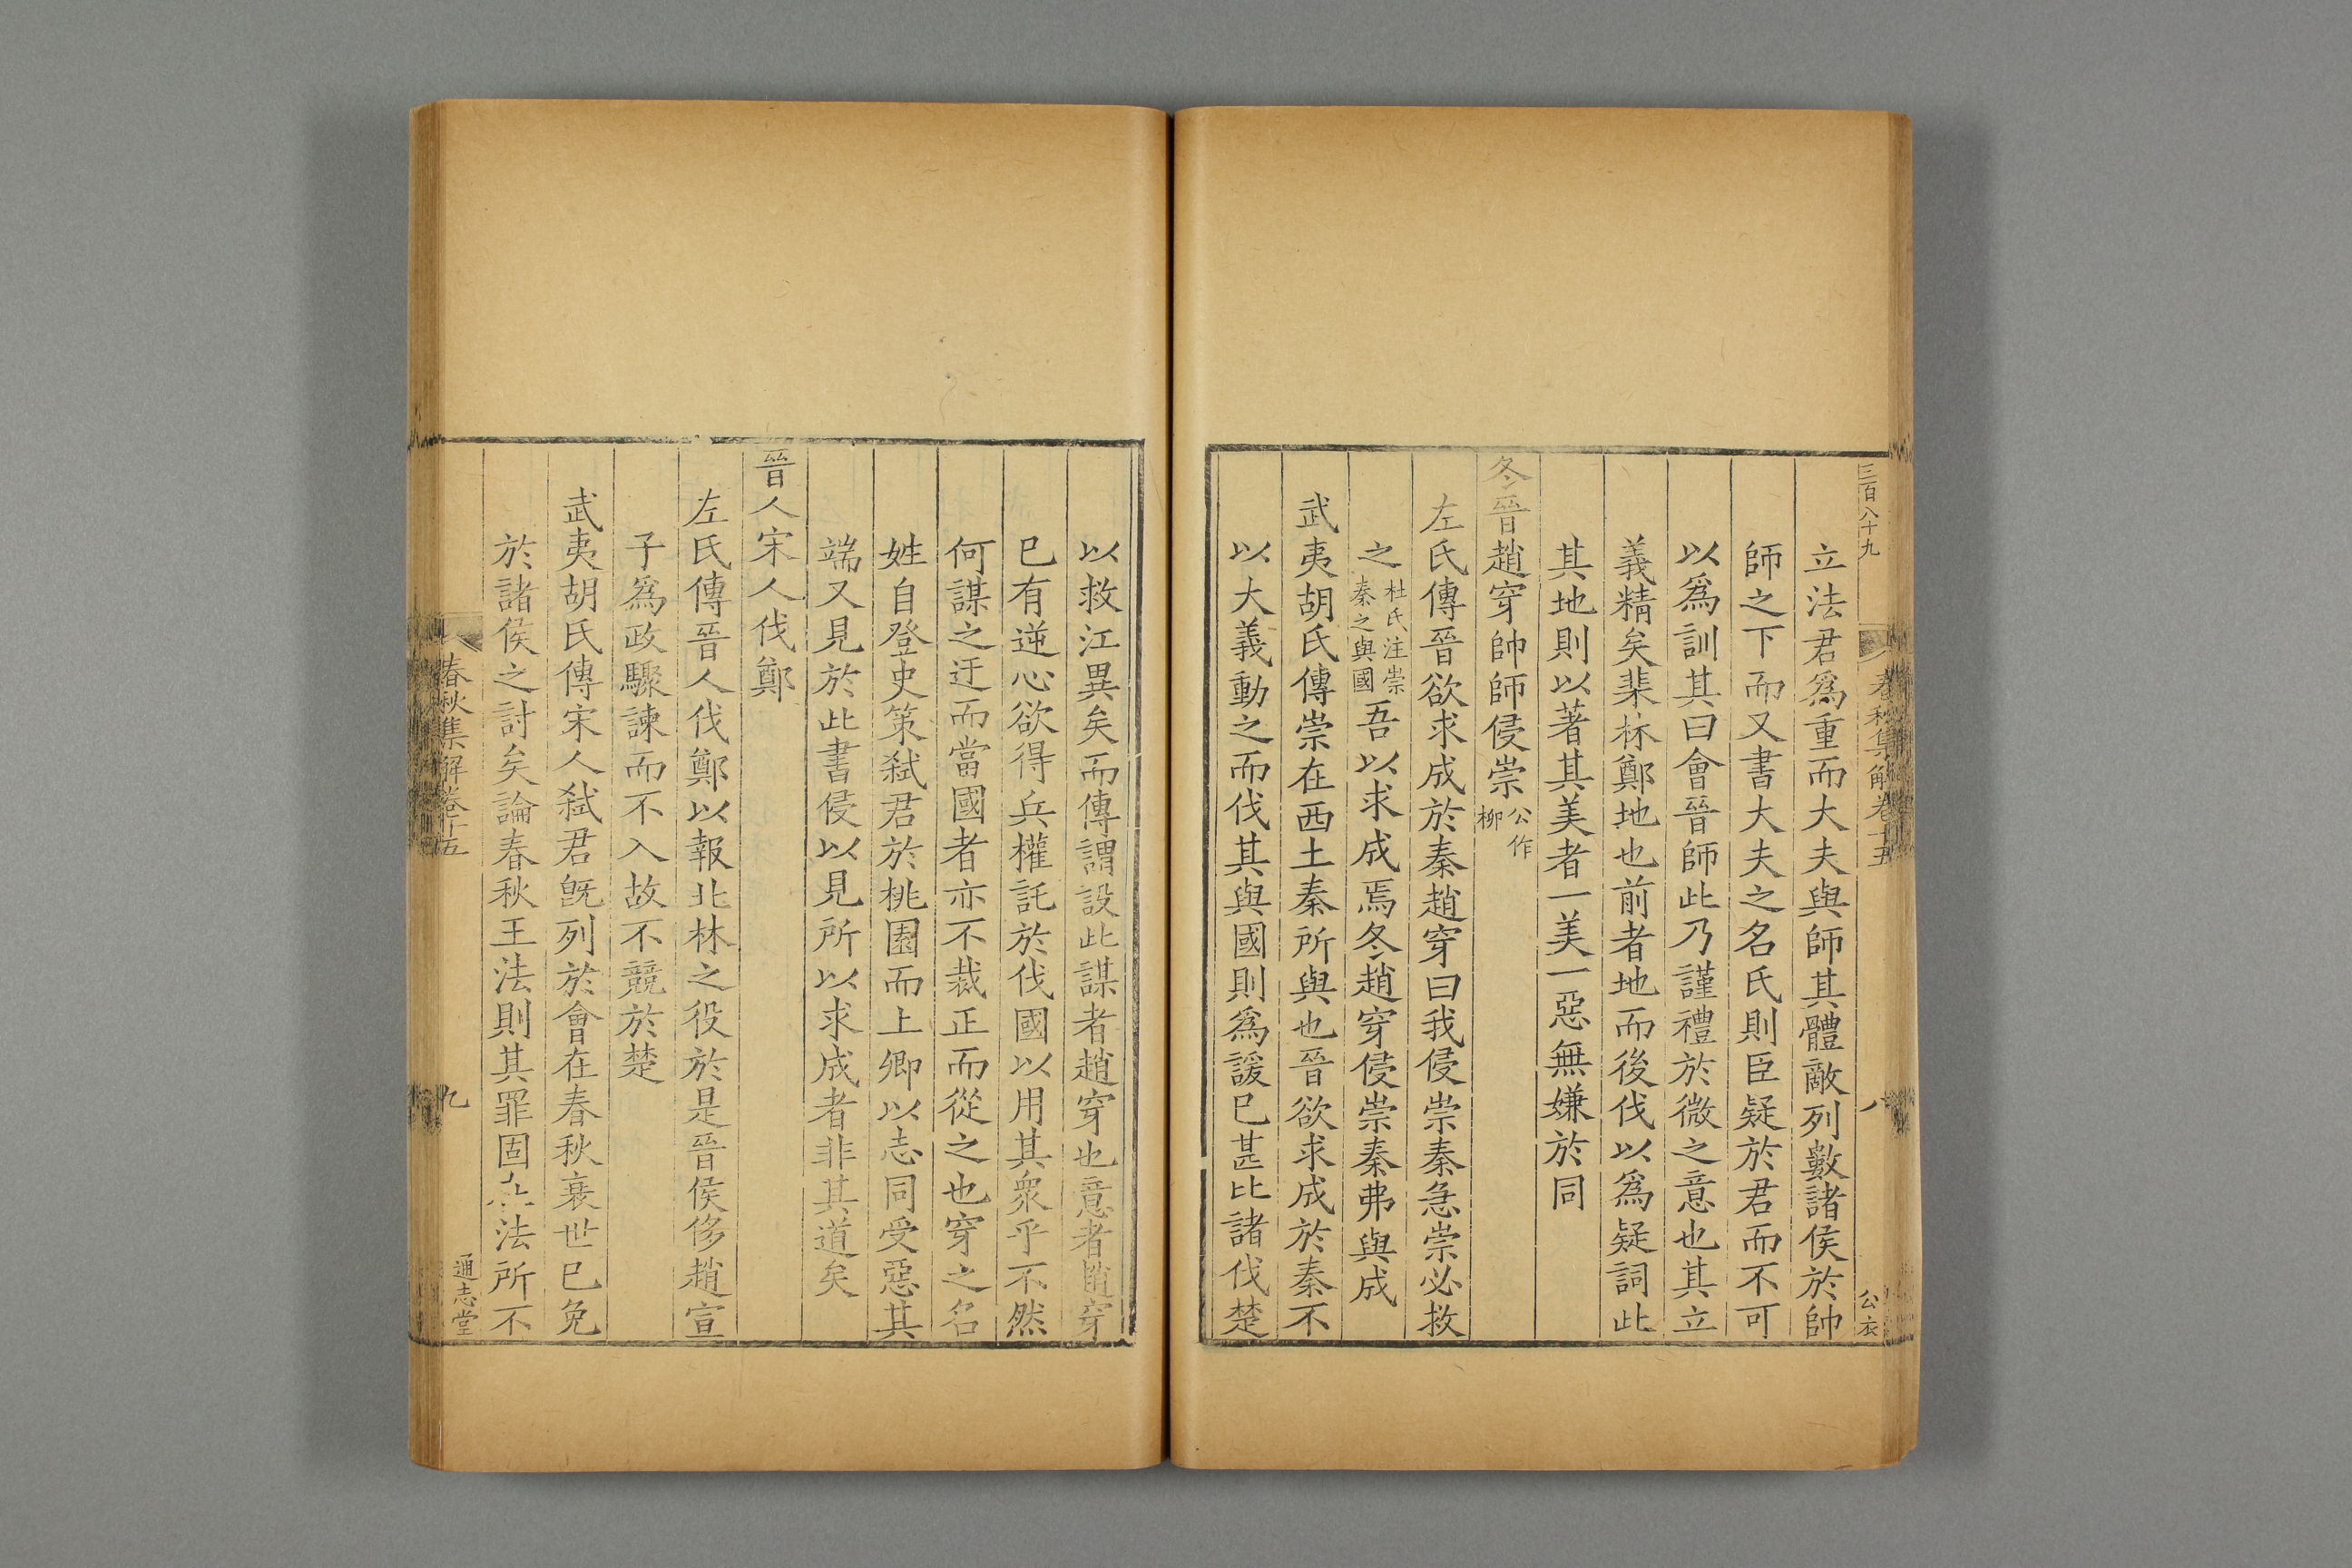 三百八十九
春秋集解卷十五
八
公衣
立法君爲重而大夫與師其體敵列數諸侯於帥
師之下而又書大夫之名氏則臣疑於君而不可
以爲訓其曰會晉師此乃謹禮於微之意也其立
義精矣棐林鄭地也前者地而後伐以爲疑詞此
其地則以著其美者一美一惡無嫌於同
冬晉趙穿帥師侵崇公作柳
左氏傳晉欲求成於秦趙穿曰我侵崇秦急崇必救
之杜氏注崇秦之與國吾以求成焉冬趙穿侵崇秦弗與成
武夷胡氏傳崇在西土秦所與也晉欲求成於秦不
以大義動之而伐其與國則爲諼巳甚比諸伐楚
以救江異矣而傳謂設此謀者趙穿也意者趙穿
巳有逆心欲得兵權託於伐國以用其衆乎不然
何謀之迂而當國者亦不裁正而從之也穿之名
姓自登史策弑君於桃園而上卿以志同受惡其
端又見於此書侵以見所以求成者非其道矣
晉人宋人伐鄭
左氏傳晉人伐鄭以報北林之役於是晉侯侈趙宣
子爲政驟諫而不入故不競於楚
武夷胡氏傳宋人弑君旣列於會在春秋衰世巳免
於諸侯之討矣論春秋王法則其罪固 法所不
春秋集解卷十五
九
通志堂